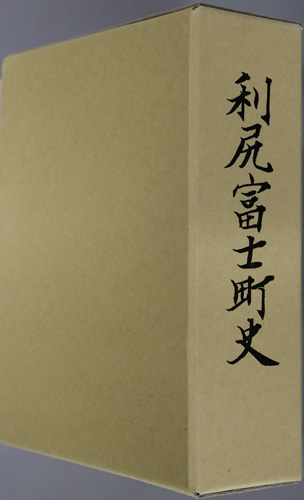 利尻富士町史